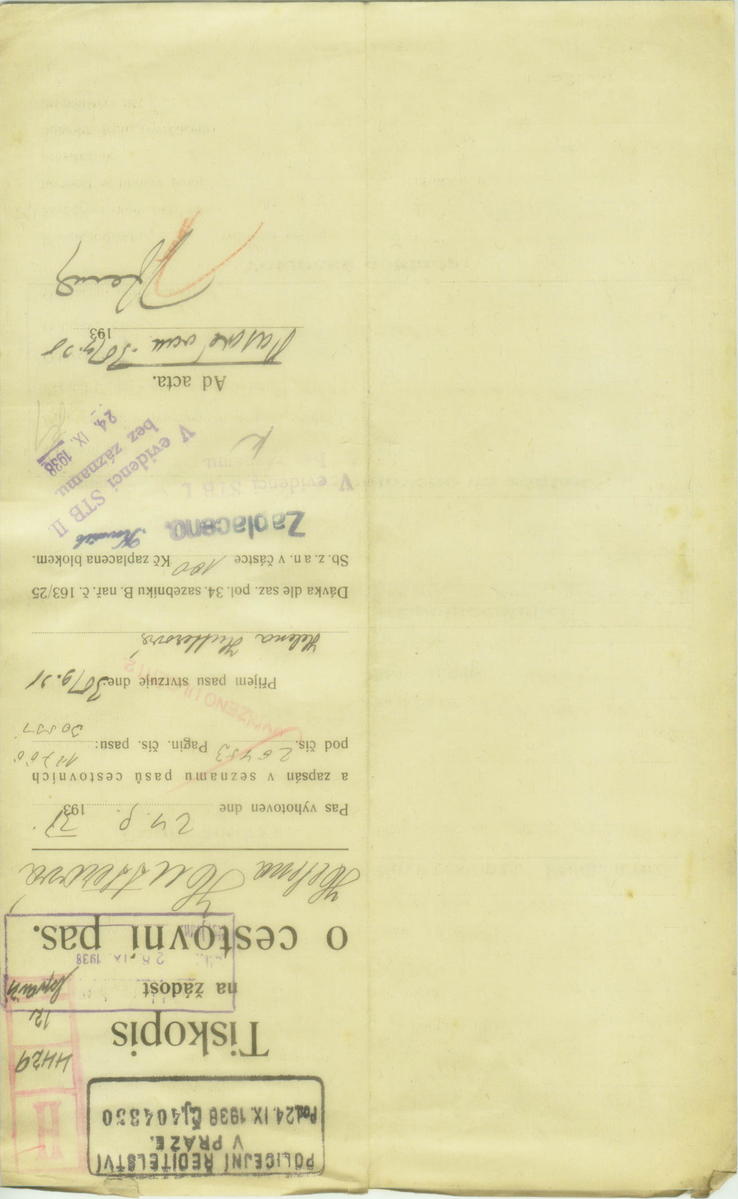 POLICEJNÍ ŘEDITELSTVÍ
V PRAZE.
Pod. 24. IX. 1938 Čj. 404330
H
4429
12
Tiskopis
na žádost
o cestovní pas.
28. IX 1938
Helena Hutterová
Pas vyhotoven dne 24. 9. 193
a zapsán v seznamu pasů cestovních
pod čís. Pagin. čís. pasu:
Příjem pasu stvrzuje dne 30/9.38
Helena Hutterová
Dávka dle saz. pol. 34. sazebníku B. nař. č. 163/25
Sb. z. a n. v částce 100 Kč zaplacena blokem.
Zaplaceno.
V evidenci STB I.
V evidenci STB II.
bez záznamu.
24. IX. 1938
Ad acta.
30/9.38 193